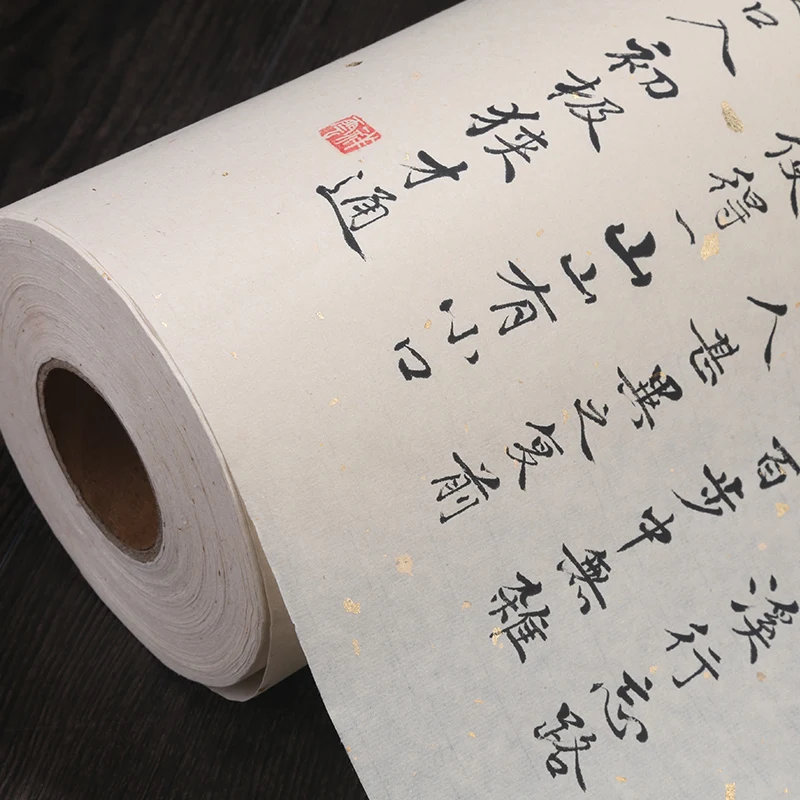 溪行忘路
百步中無雜
人甚異之复前
便得一山山有小口
口入初极狭才通